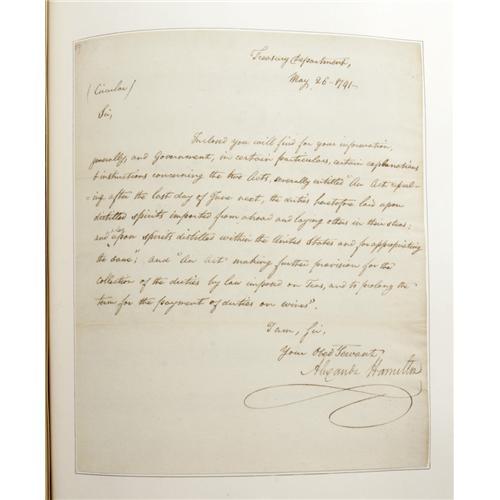 Treasury Department,
May 26 - 1791 -
(Circular)
Sir,
Inclosed you will find for your information,
generally, and Government, in certain particulars, certain explanations
& instructions concerning the two Acts, severally entitled "An Act repeal-
-ing after the last day of June next, the duties heretofore laid upon
distilled spirits imported from abroad and laying others in their stead;
and "upon spirits distilled within the United States and for appropriating
the same"; and "An Act making further provision for the
collection of the duties by law imposed on Teas, and to prolong the
term for the payment of duties on wines".
I am, Sir,
Your Obed Servant
Alexander Hamilton